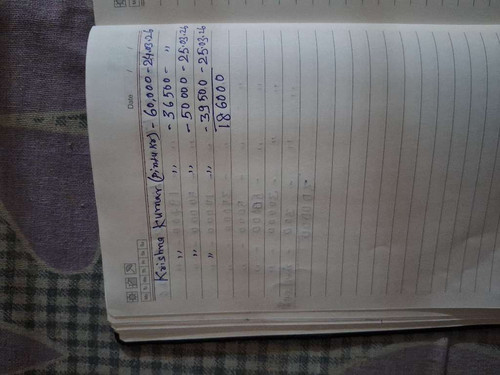 Date / /
Krishna Kumar (Pintukr) - 60,000 - 24.03.26
" " - 36500 - "
" " - 50000 - 25.03.26
" " - 39500 - 25.03.26
186000